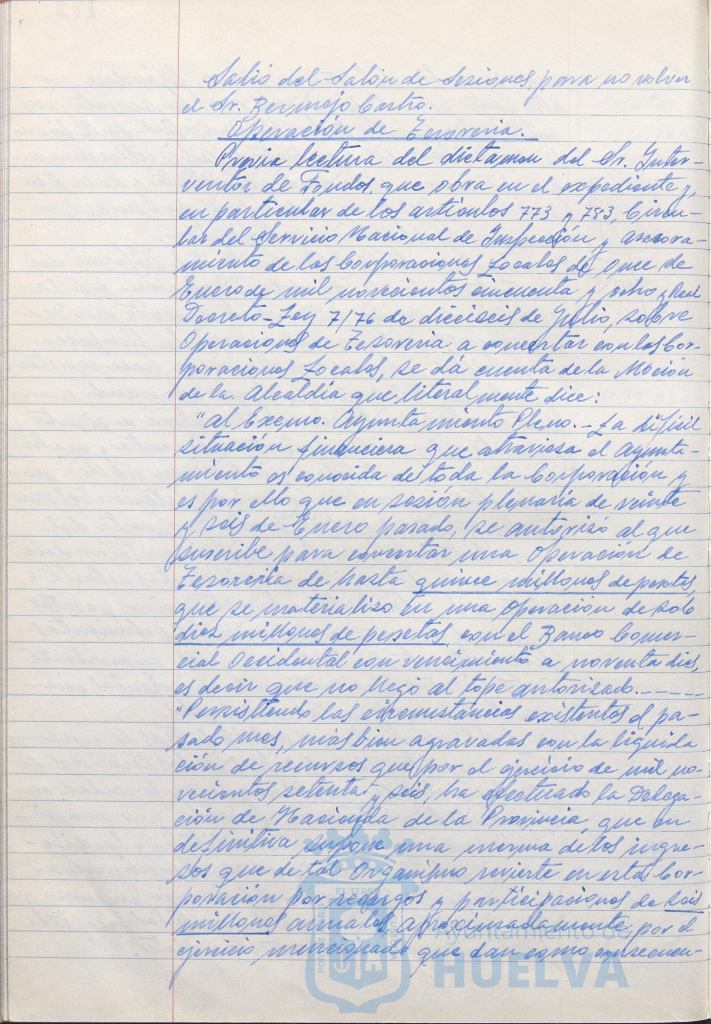 Salió del Salón de Sesiones, para no volver
el Sr. Bermejo Castro.
Operación de Tesorería.
Previa lectura del dictamen del Sr. Inter-
ventor de Fondos, que obra en el expediente y,
en particular de los artículos 773 y 783, Circu-
lar del Servicio Nacional de Inspección y asesora-
miento de las Corporaciones Locales de once de
Enero de mil novecientos cincuenta y ocho y Real
Decreto-Ley 7/76 de dieciseis de Julio, sobre
Operaciones de Tesorería a concertar con las Cor-
poraciones Locales, se dá cuenta de la Moción
de la Alcaldía que literalmente dice:
"Al Excmo. Ayuntamiento Pleno.- La difícil
situación financiera que atraviesa el Ayunta-
miento es conocida de toda la Corporación y
es por ello que en sesión plenaria de veinte
y seis de Enero pasado, se autorizó al que
suscribe para concertar una Operación de
Tesorería de hasta quince millones de pesetas,
que se materializo en una operación de solo
diez millones de pesetas con el Banco Comer-
cial Occidental con vencimiento a noventa dias,
es decir que no llegó al tope autorizado.-----
"Persistiendo las circunstancias existentes el pa-
sado mes, más bien agravadas con la liquida
ción de recursos que por el ejercicio de mil no-
vecientos setenta y seis, ha efectuado la Delega-
ción de Hacienda de la Provincia, que en
definitiva supone una merma de los ingre-
sos que de tal Organismo revierte en esta Cor-
poración por recargos y participaciones de seis
millones anuales, aproximadamente, por el
ejercicio mencionado que dan como consecuen-
Ayuntamiento de
HUELVA